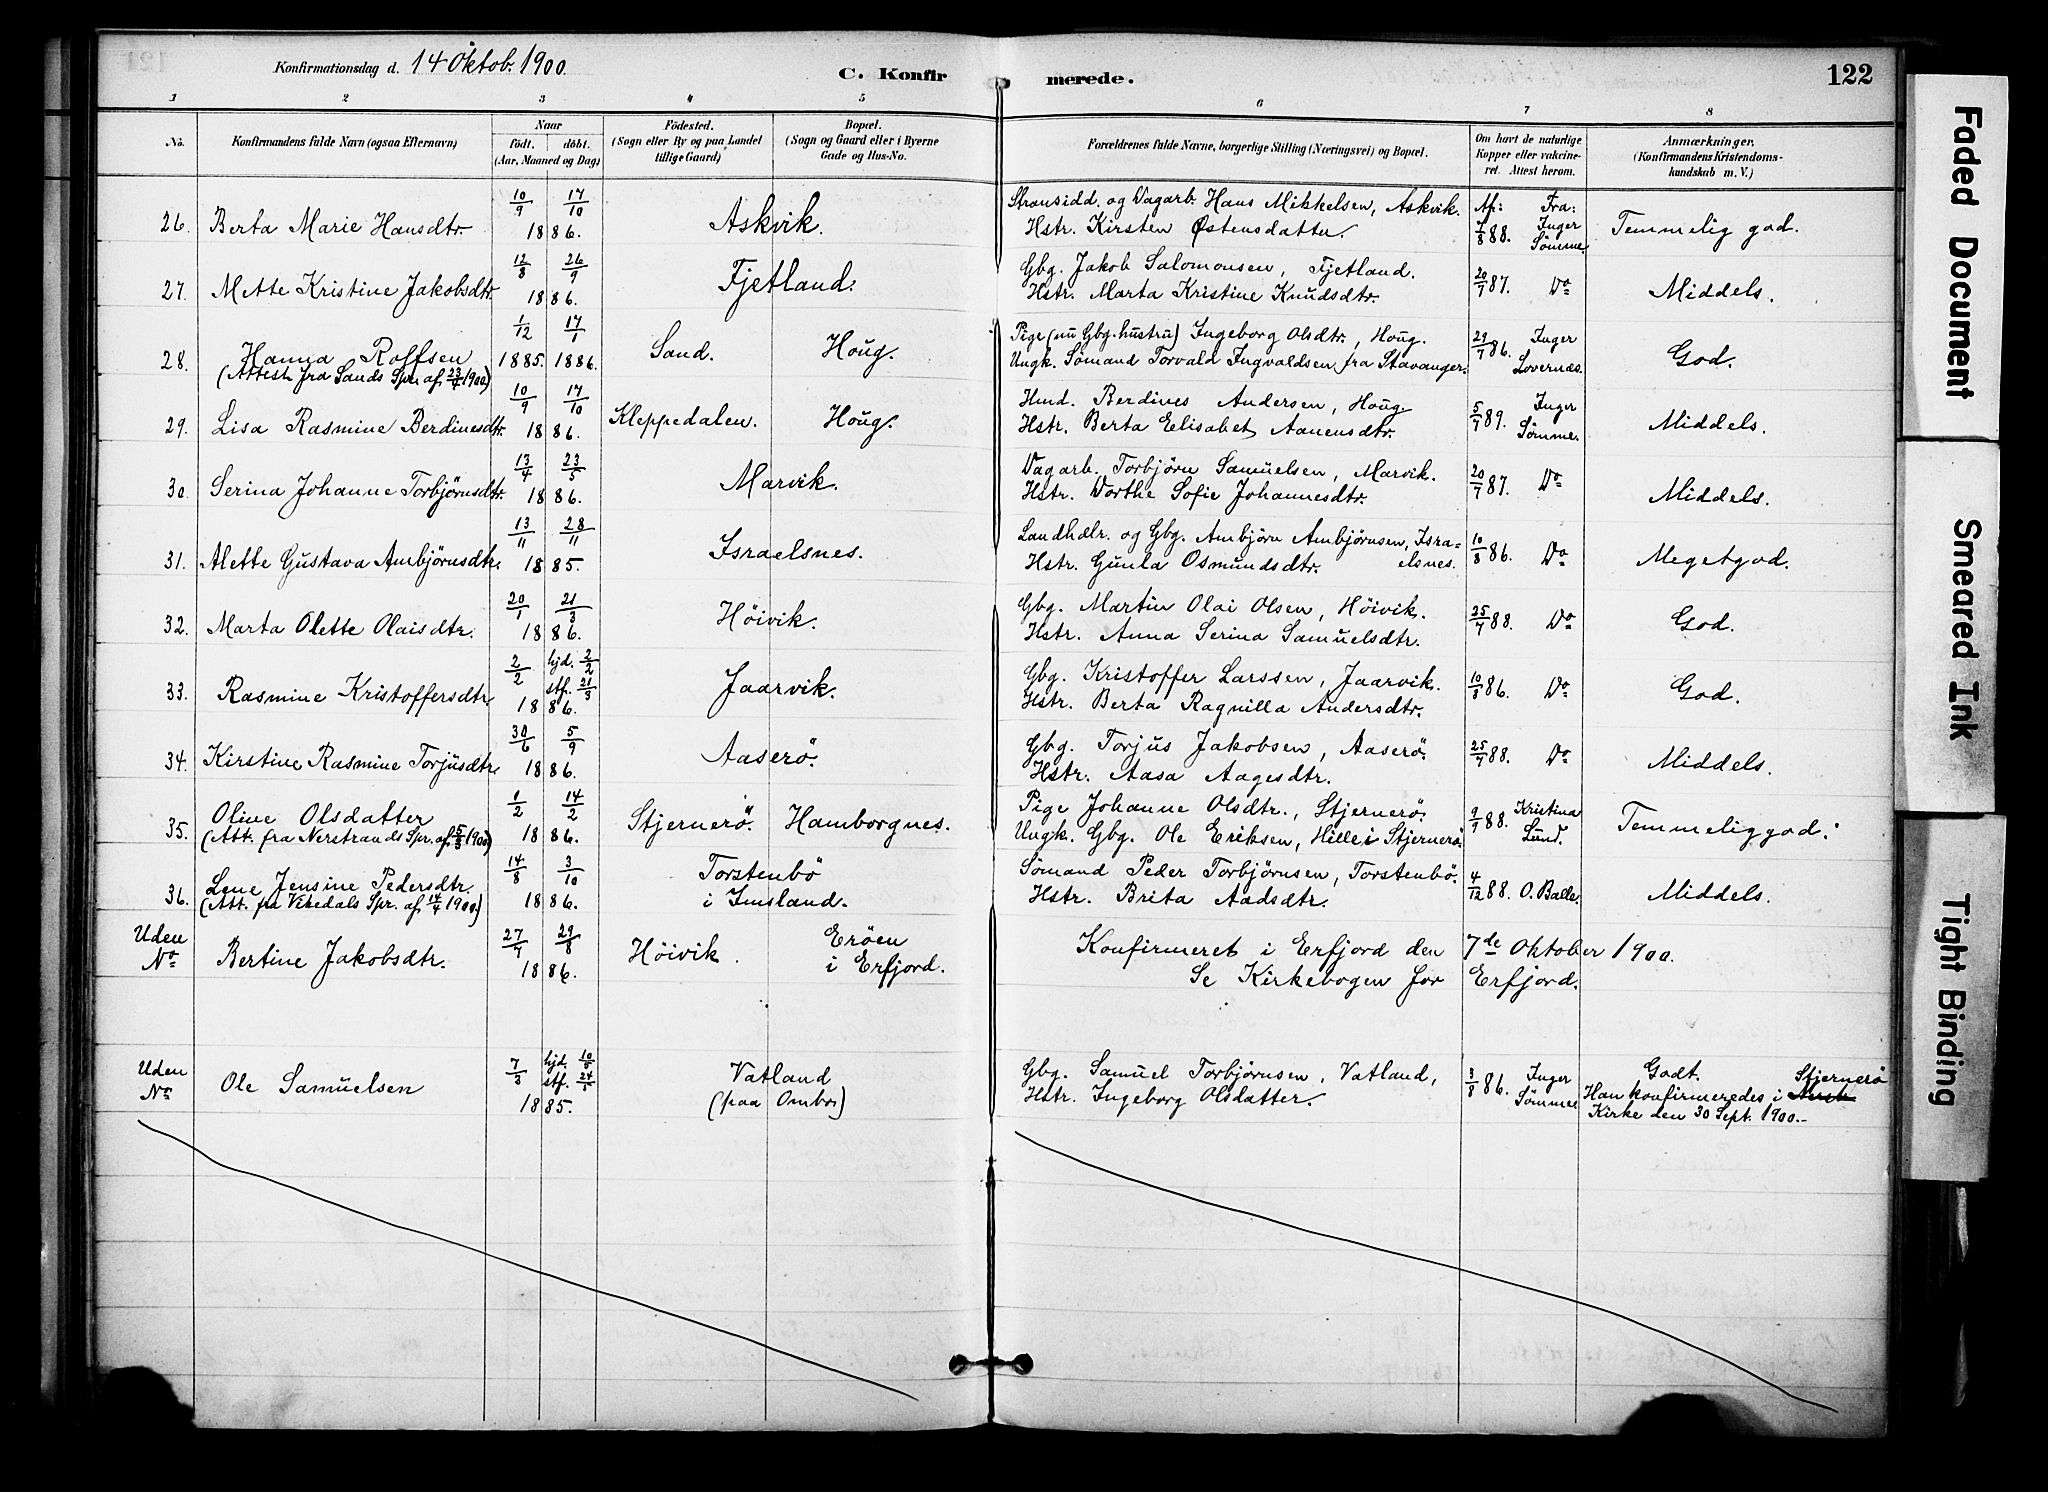 Konfirmationsdag d. 14 Oktob. 1900.
C. Konfirmerede.
122
1 2 3 4 5 6 7 8
No.
Konfirmandens fulde Navn (ogsaa Efternavn)
Naar
født. døbt.
(Aar, Maaned og Dag)
Födested.
(Sogn eller By og paa Landet tillige Gaard)
Bopæl.
(Sogn og Gaard eller i Byerne Gade og Hus-No.
Forældrenes fulde Navne, borgerlige Stilling (Næringsvei) og Bopæl.
Om havt de naturlige Kopper eller vakcineret. Attest herom.
Anmærkninger.
(Konfirmandens Kristendomskundskab m. V.)
26. Berta Marie Hansdtr. 10/9 17/10 1886. Askvik.
Stransidd. og Dagarb. Hans Mikkelsen, Askvik.
Hstr. Kirsten Østensdatter.
Af: 7/8 88. Fra: Inger Sömme. Temmelig god.
27. Mette Kristine Jakobsdtr. 12/8 26/9 1886. Fjetland.
Gbg. Jakob Salomonsen, Fjetland.
Hstr. Marta Kristine Knudsdtr.
20/7 87. Do Middels.
28. Hanna Roffsen 1/12 1885. 17/1 1886. Sand. Houg.
(Attest fra Sands Spr. af 23/4 1900)
Pige (nu Gbg. hustru) Ingeborg Olsdtr., Houg.
Ungk. Sömand Torvald Ingvaldsen fra Stavanger.
29/7 86. Inger Lovernæs. God.
29. Lisa Rasmine Berdinesdtr. 10/9 17/10 1886. Kleppedalen. Houg.
Hmd. Berdines Andersen, Houg.
Hstr. Berta Elisabet Aanensdtr.
5/7 89. Inger Sömme. Middels.
30. Serina Johanne Torbjörnsdtr. 13/4 23/5 1886. Marvik.
Dagarb. Torbjörn Samuelsen, Marvik.
Hstr. Dorthe Sofie Johannesdtr.
20/7 87. Do Middels.
31. Alette Gustava Ambjörnsdtr. 13/11 28/11 1885. Israelsnes.
Landhdlr. og Gbg. Ambjörn Ambjörnsen, Isra-
Hstr. Gunla Osmundsdtr. elsnes.
10/8 86. Do Megetgod.
32. Marta Olette Olaisdtr. 20/1 21/3 1886. Höivik.
Gbg. Martin Olai Olsen, Höivik.
Hstr. Anna Serina Samuelsdtr.
25/7 88. Do God.
33. Rasmine Kristoffersdtr. 2/2 hjd. 2/2 stf. 21/3 1886. Jaarvik.
Gbg. Kristoffer Larssen, Jaarvik.
Hstr. Berta Ragnilla Andersdtr.
10/8 86. Do God.
34. Kirstine Rasmine Torjusdtr. 30/6 5/9 1886. Aaserö.
Gbg. Torjus Jakobsen, Aaserö.
Hstr. Aasa Aagesdtr.
25/7 88. Do Middels.
35. Olive Olsdatter 1/2 14/2 1886. Stjernerö. Hamborgnes.
(Att. fra Nerstrands Spr. af 5/3 1900)
Pige Johanne Olsdtr., Stjernerö.
Ungk. Gbg. Ole Eriksen, Hille i Stjernerö.
9/7 88. Kristina Lund. Temmelig god.
36. Lene Jensine Pedersdtr. 14/8 3/10 1886. Torstenbö i Imsland.
(Att. fra Vikedals Spr. af 14/4 1900)
Sömand Peder Torbjörnsen, Torstenbö.
Hstr. Brita Aadsdtr.
4/12 88. O. Balle. Middels.
Uden No Bertine Jakobsdtr. 27/7 29/8 1886. Höivik. Eröen i Erfjord.
Konfirmeret i Erfjord den 7de Oktober 1900.
Se Kirkebogen for Erfjord.
Uden No Ole Samuelsen 7/3 hjd. 10/3 stf. 24/5 1885. Vatland (paa Ombo)
Gbg. Samuel Torbjörnsen, Vatland,
Hstr. Ingeborg Olsdatter.
3/8 86. Inger Sömme Godt.
Stjernerö
Han konfirmeredes i
Kirke den 30 Sept. 1900.
Faded Document
Smeared Ink
Tight Binding